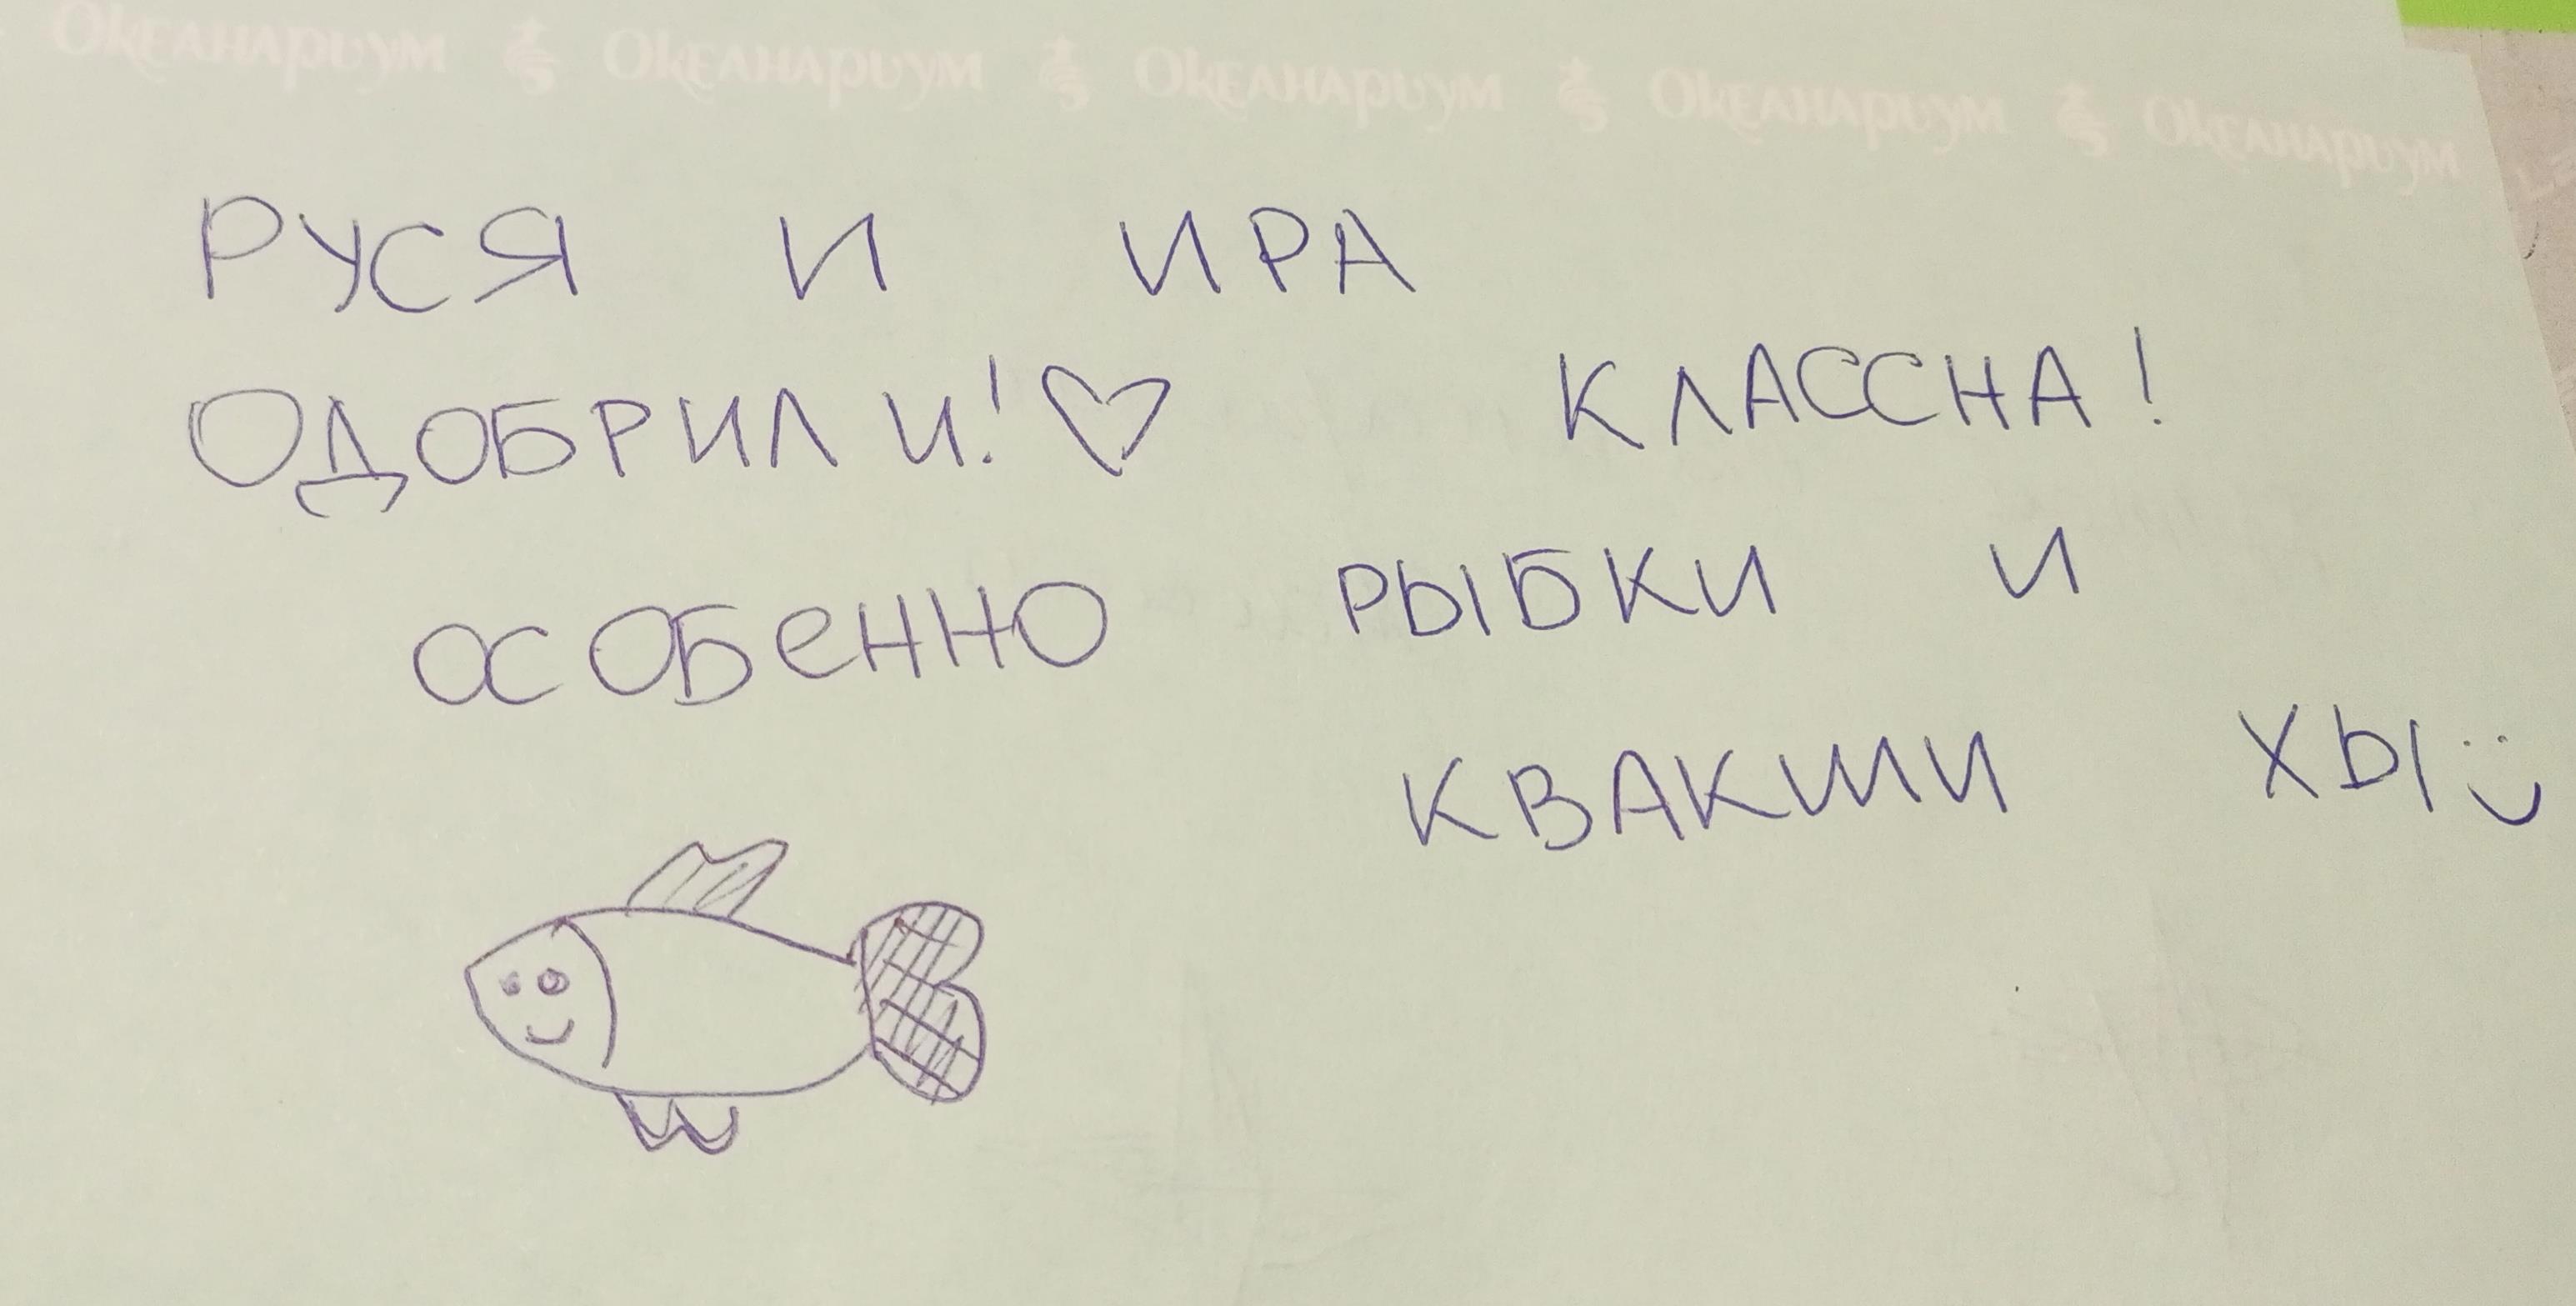 Океанариум Океанариум Океанариум Океанариум Океанариум
РУСЯ И ИРА
ОДОБРИЛИ! ♡ КЛАССНА!
ОСОБеННО РЫБКИ И
КВАКШИ ХЫ